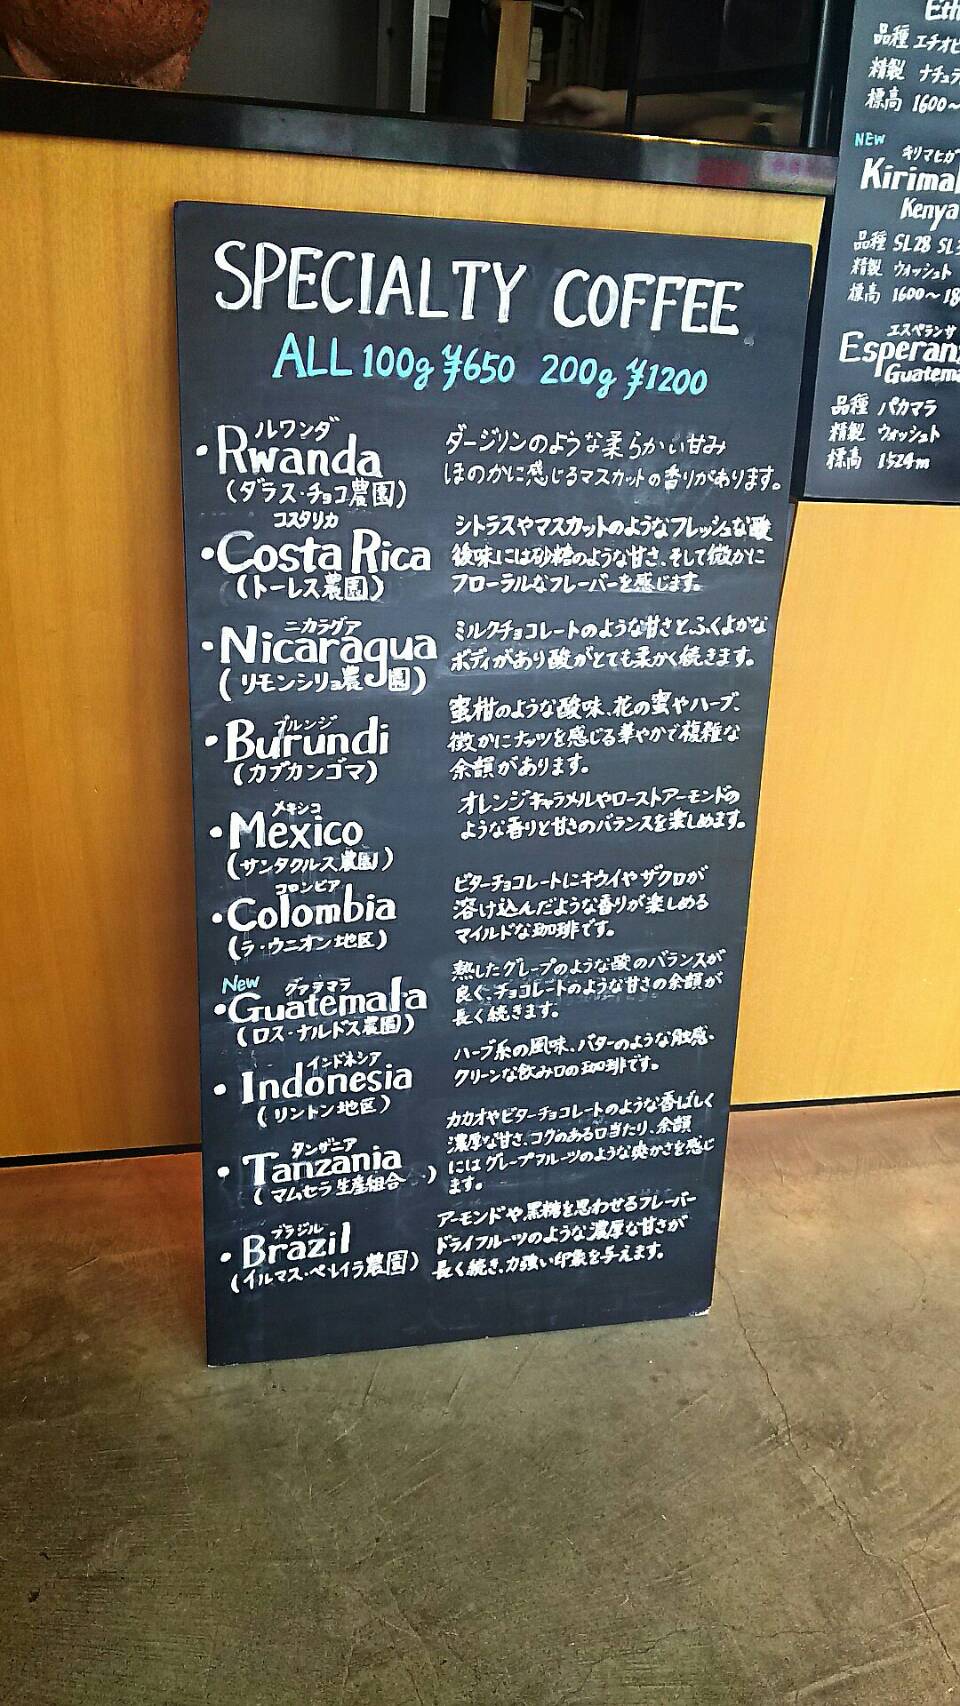 SPECIALTY COFFEE
ALL 100g ¥650 200g ¥1200
ルワンダ
・Rwanda
(ダラス・チョコ農園)
ダージリンのような柔らかい甘み
ほのかに感じるマスカットの香りがあります。
コスタリカ
・Costa Rica
(トーレス農園)
シトラスやマスカットのようなフレッシュな酸
後味には砂糖のような甘さ、そして微かに
フローラルなフレーバーを感じます。
ニカラグア
・Nicaragua
(リモンシリョ農園)
ミルクチョコレートのような甘さとふくよかな
ボディがあり酸がとても柔かく続きます。
ブルンジ
・Burundi
(カブカンゴマ)
蜜柑のような酸味、花の蜜やハーブ、
微かにナッツを感じる華やかで複雑な
余韻があります。
メキシコ
・Mexico
(サンタクルス農園)
オレンジキャラメルやローストアーモンドの
ような香りと甘さのバランスを楽しめます。
コロンビア
・Colombia
(ラ・ウニオン地区)
ビターチョコレートにキウイやザクロが
溶け込んだような香りが楽しめる
マイルドな珈琲です。
New
グァテマラ
・Guatemala
(ロス・ナルドス農園)
熟したグレープのような酸のバランスが
良く、チョコレートのような甘さの余韻が
長く続きます。
インドネシア
・Indonesia
(リントン地区)
ハーブ系の風味、バターのような触感・
クリーンな飲み口の珈琲です。
タンザニア
・Tanzania
(マムセラ生産組合)
カカオやビターチョコレートのような香ばしく
濃厚な甘さ、コクのある口当たり、余韻
にはグレープフルーツのような爽かさを感じ
ます。
ブラジル
・Brazil
(イルマス・ペレイラ農園)
アーモンドや黒糖を思わせるフレーバー
ドライフルーツのような濃厚な甘さが
長く続き、力強い印象を与えます。
Eth
品種 エチオピ
精製 ナチュラ
標高 1600〜
NEW
キリマヒガ
Kirima
Kenya
品種 SL28 SL
精製 ウォッシュト
標高 1600〜18
エスペランサ
Esperan
Guatema
品種 パカマラ
精製 ウォッシュト
標高 1524m